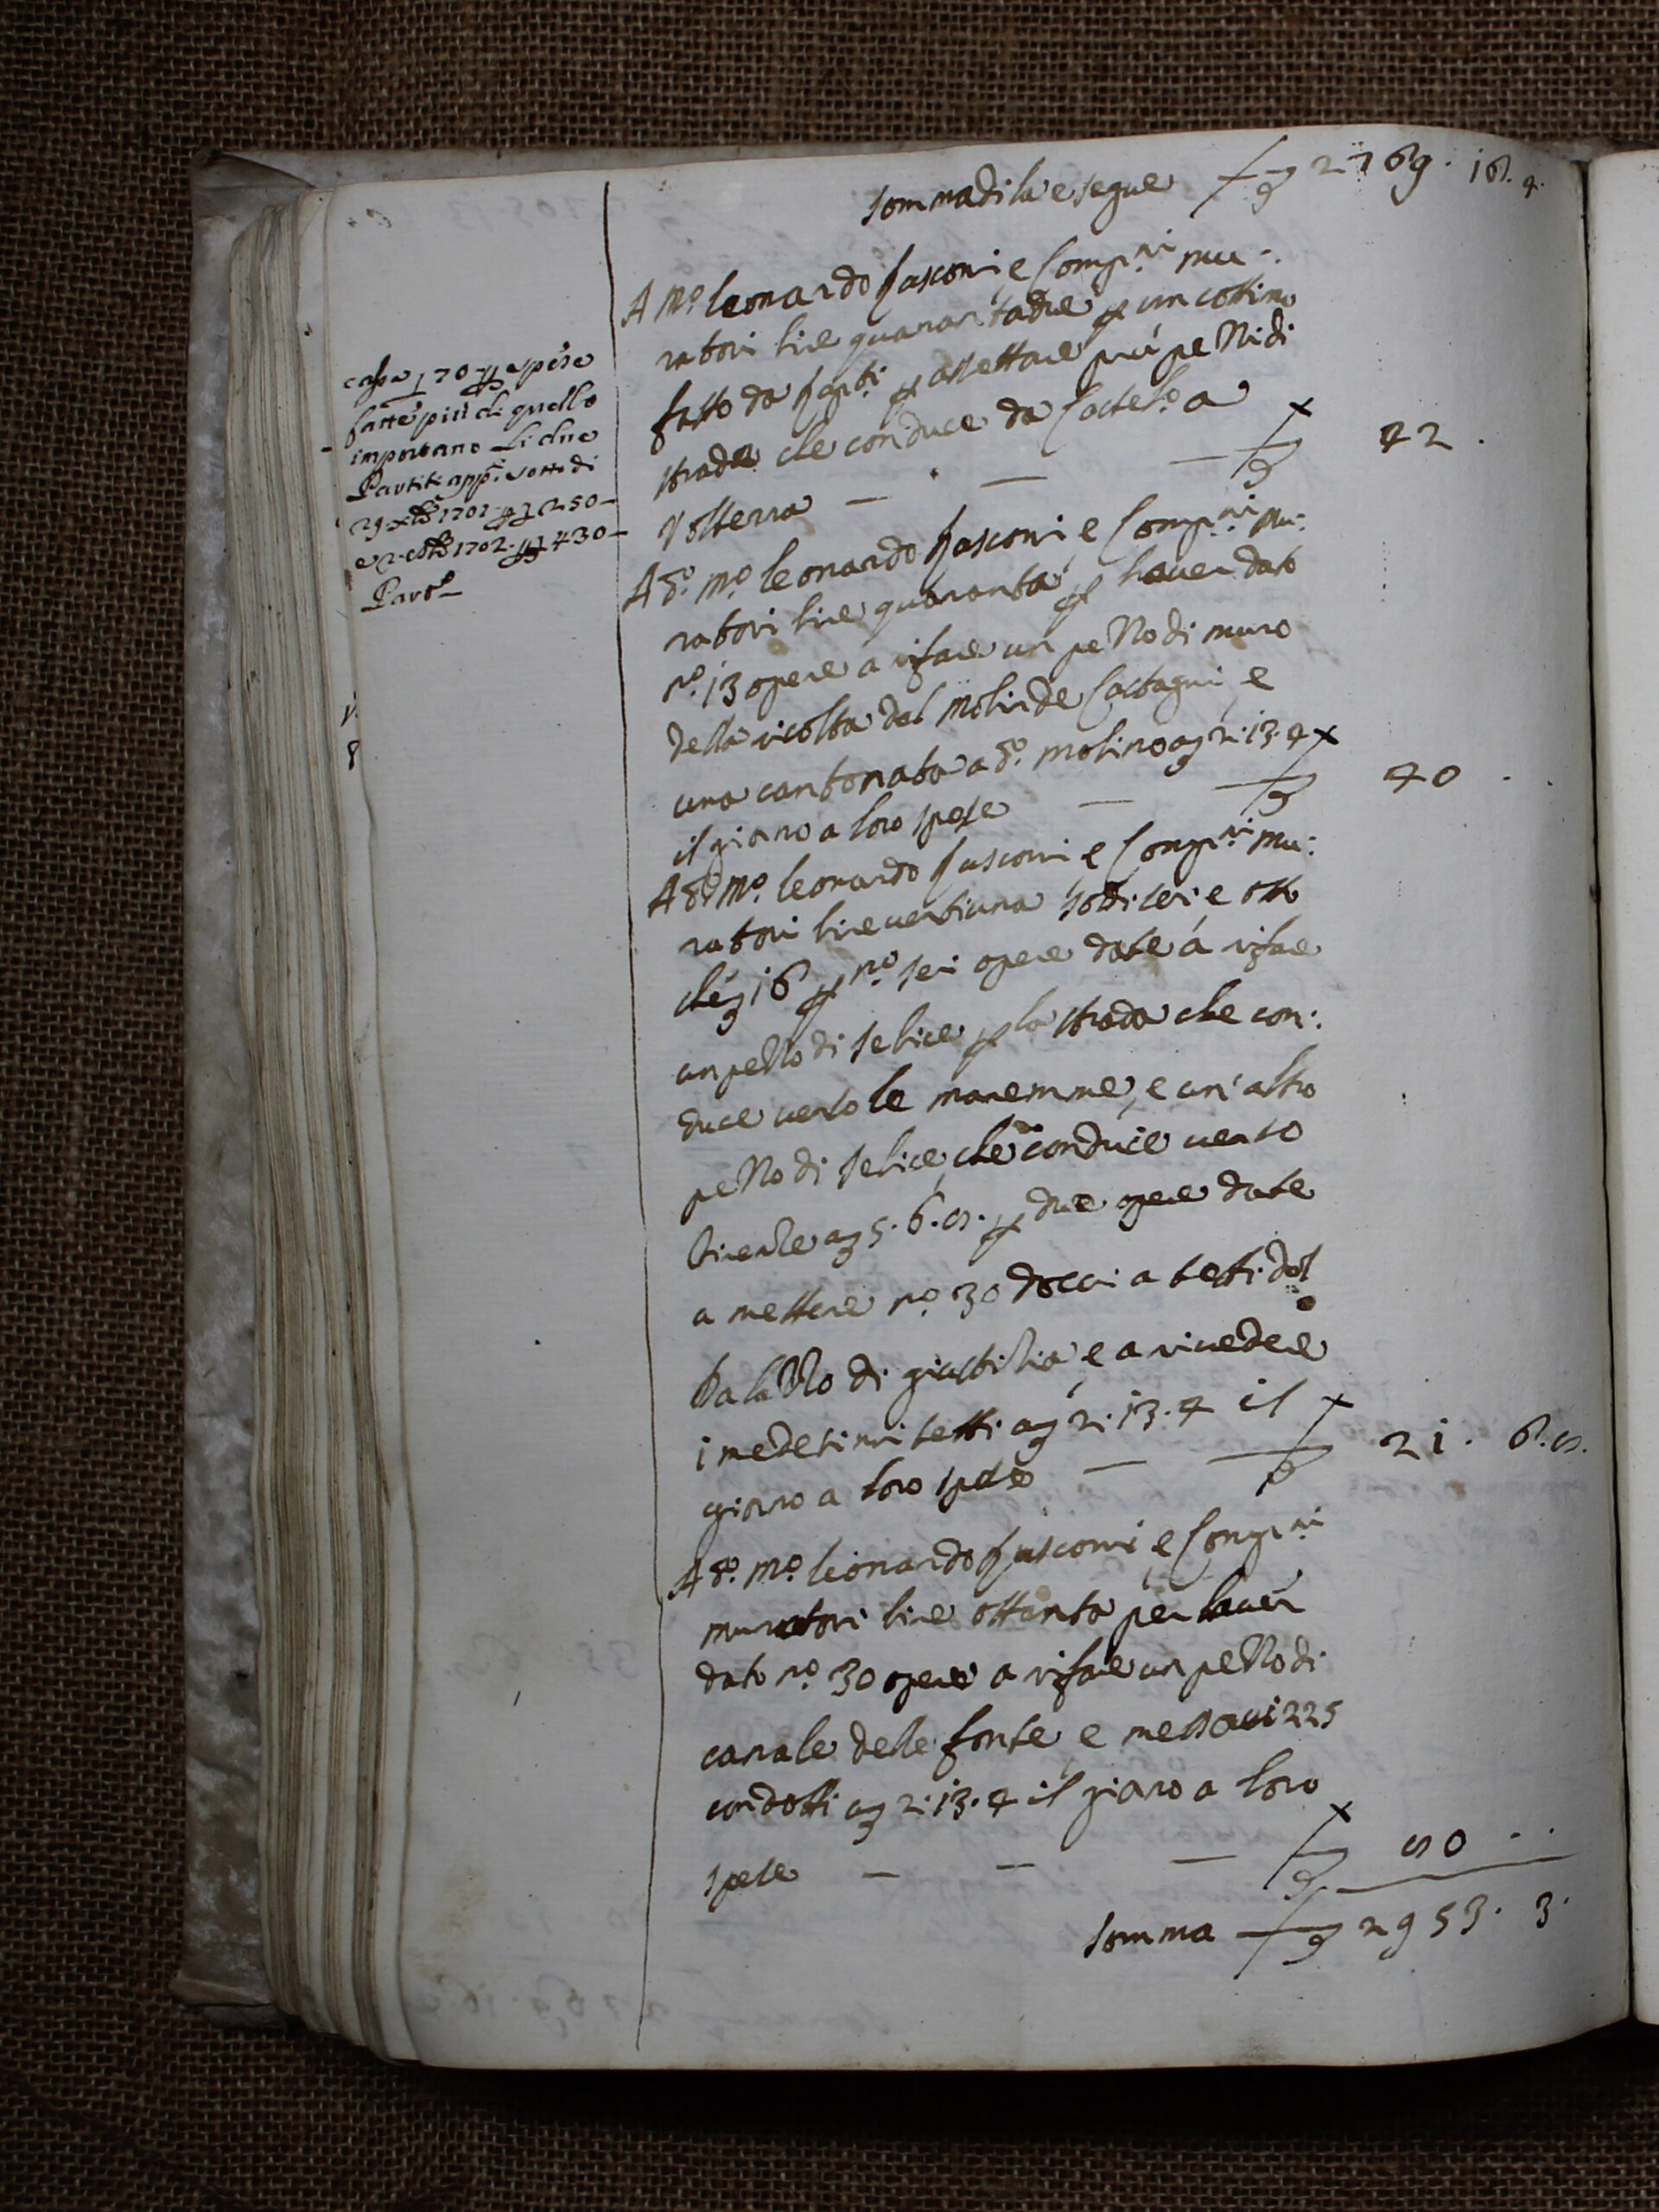 somma di la e segue £ 2769. 16. 4.
A Mo. Leonardo fusconi, e Compni. mu-
ratori lire quarantadue p un cottimo
fatto da fanti p assettare più pezzi di
strada che conduce da Castelo. a
Volterra — — — £ 42.
A do. Mo. Leonardo fusconi e Compni. mu:
ratori lire quaranta p haver dato
no. 13 opere a rifare un pezzo di muro
della ricolta del Molin de Castagni, e
una cantonata a do. molino a £ 2. 13. 4
il giorno a loro spese — £ 40
A do. Mo. Leonardo fusconi e Compni. mu:
ratori lire ventiuna soldi sei e otto
che £ 16 p no. sei opere date a rifare
un pezzo di selice p la strada che con:
duce verso le maremme, e un' altro
pezzo di selice, che conduce verso
a £ 5. 6. 8. p due opere date
a mettere no. 30 docci a tetti del
Palazzo di giustizia e a rivedere
i medesimi tetti a £ 2. 13. 4 il
giorno a loro spese — £ 21. 6. 8.
A do. Mo. Leonardo fusconi, e Compni
muratori lire ottanta per haver
dato no. 30 opere a rifare un pezzo di
canale delle fonte e messovi 225
condotti a £ 2. 13. 4 il giorno a loro
spese — — — £ 80 . .
somma £ 2953. 3.
spese
fatte più di quello
importano li due
Partiti app.i sotto di
29. Xbre 1701. £ 250—
e 2. 8bre 1702. £ 430—